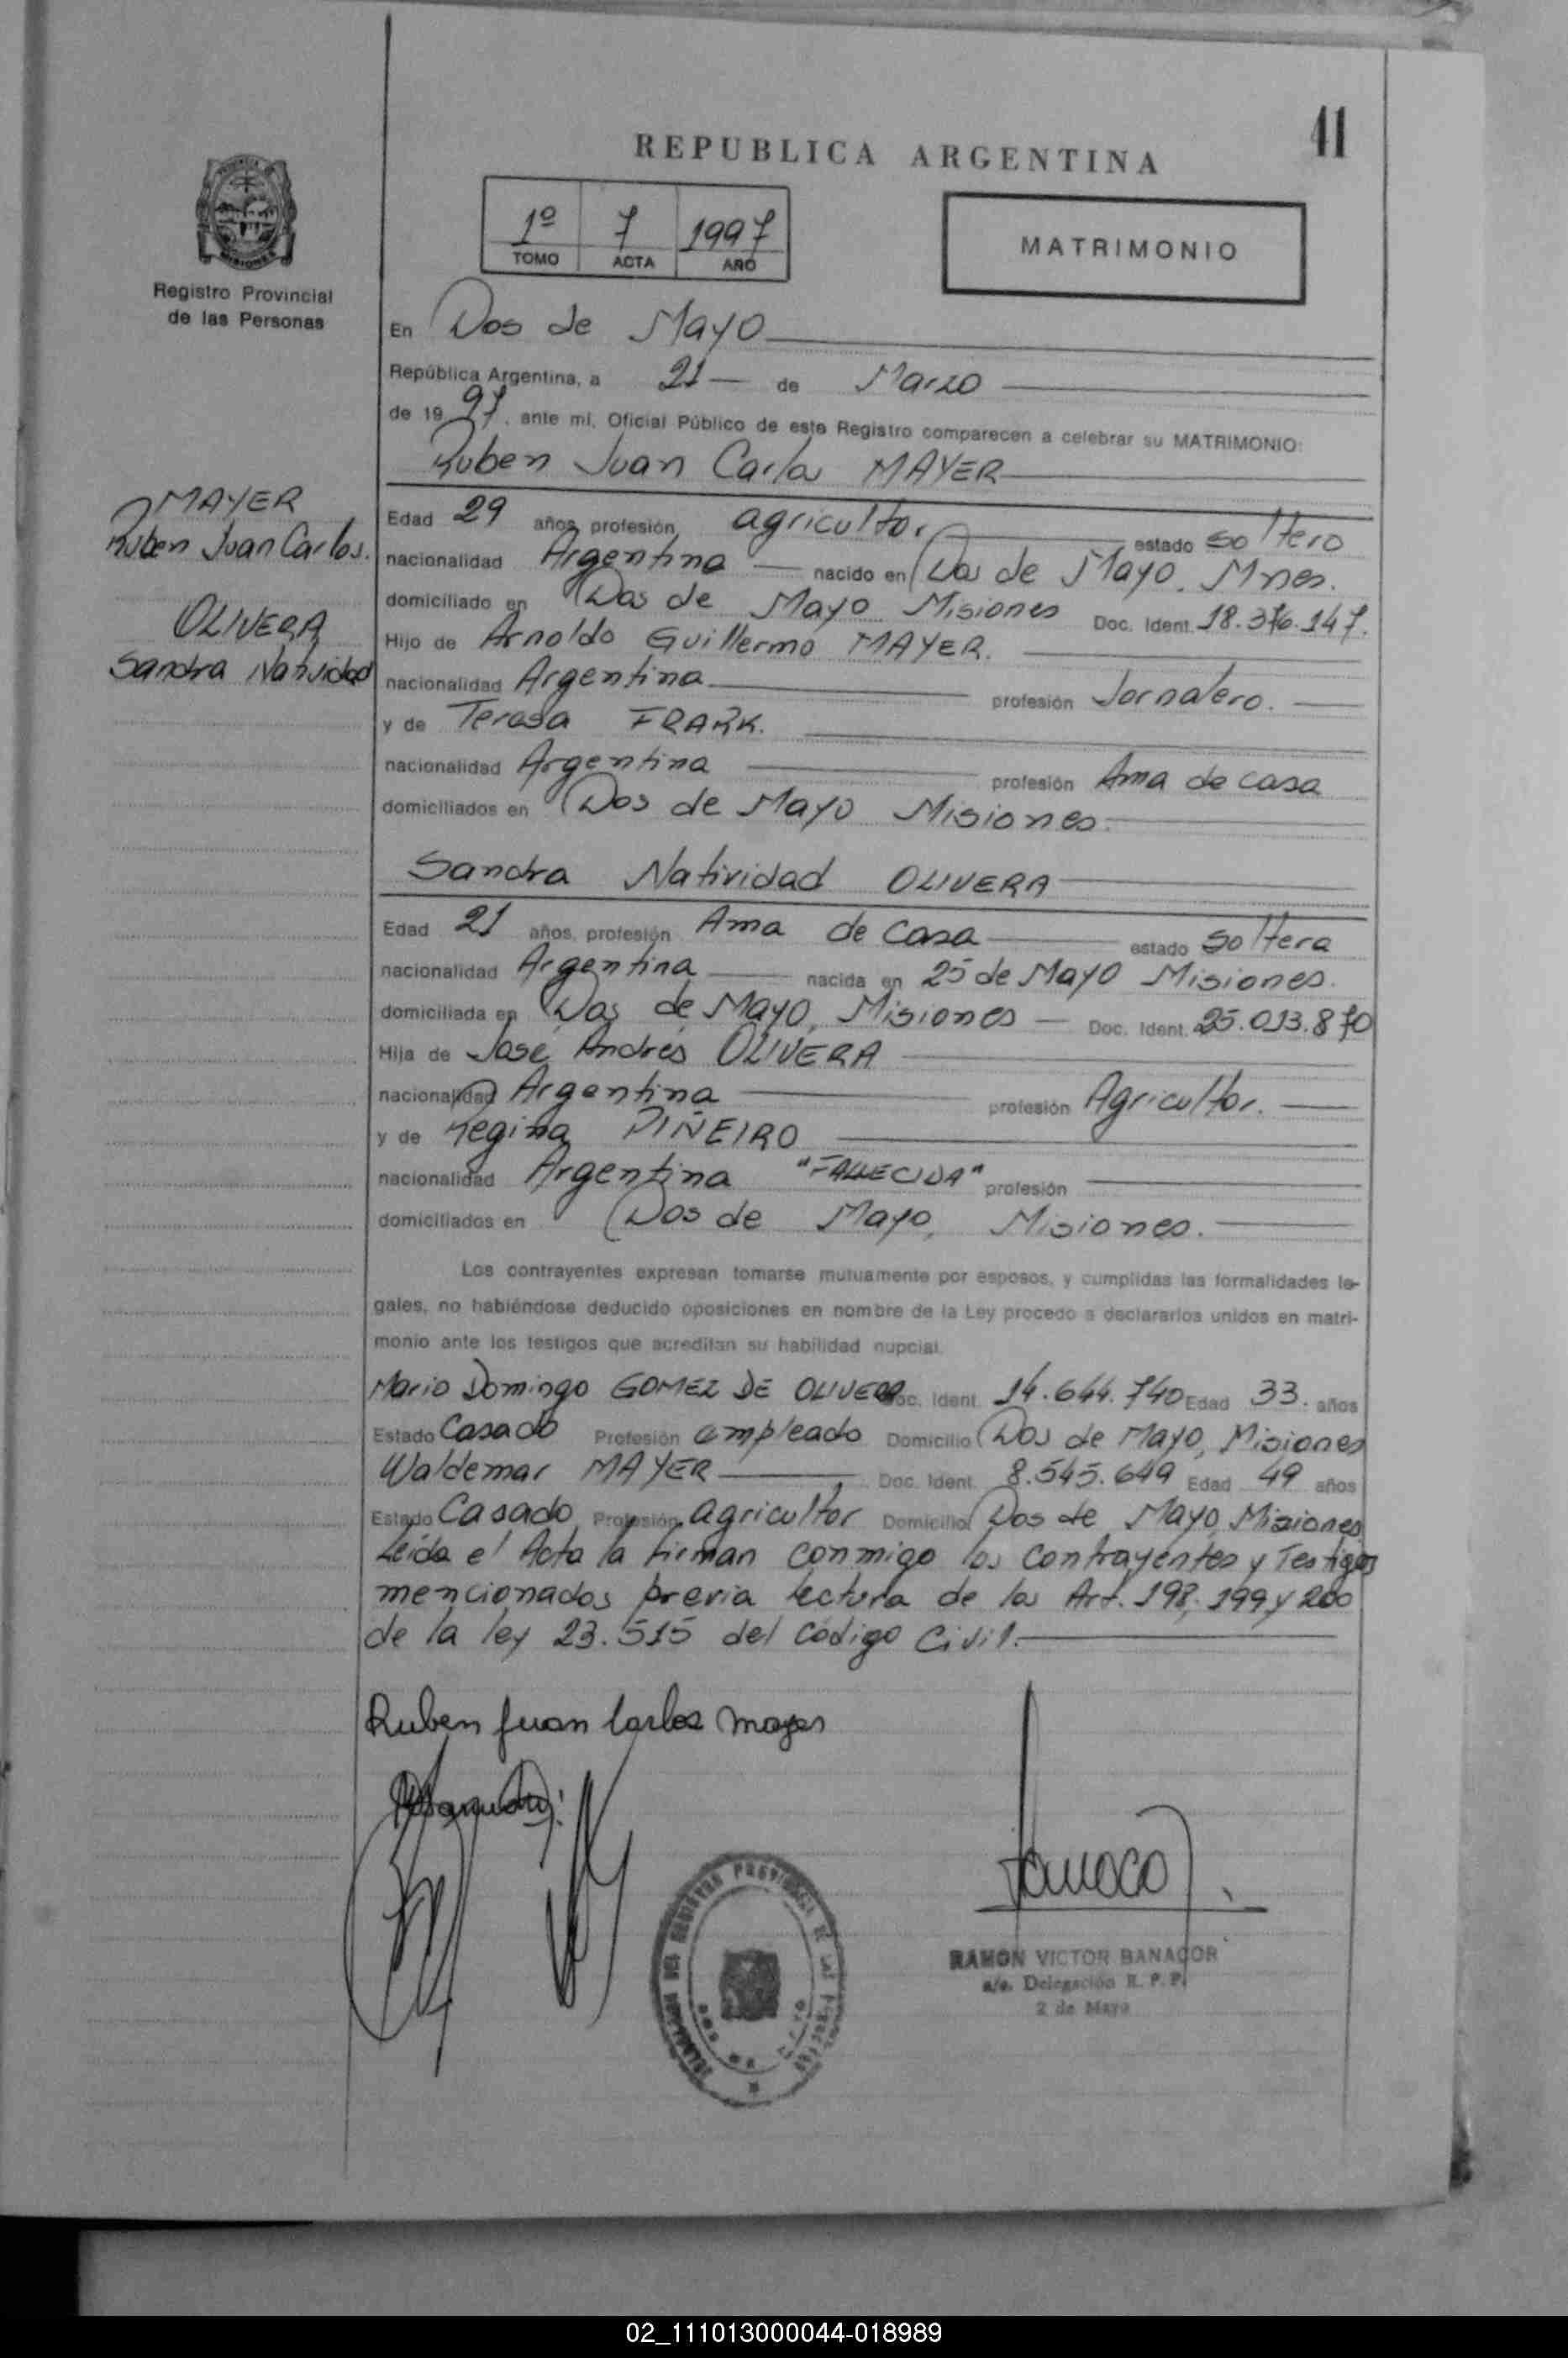 41
REPUBLICA ARGENTINA
1º 7 1997
TOMO ACTA AÑO
MATRIMONIO
Registro Provincial
de las Personas
En Dos de Mayo
República Argentina, a 21 de Marzo
de 19 97, ante mí, Oficial Público de este Registro comparecen a celebrar su MATRIMONIO:
Ruben Juan Carlos MAYER
MAYER
Ruben Juan Carlos.
OLIVERA
Sandra Natividad
Edad 29 años, profesión agricultor estado soltero
nacionalidad Argentina nacido en Dos de Mayo. Mnes.
domiciliado en Dos de Mayo Misiones Doc. Ident. 18.376.147.
Hijo de Arnoldo Guillermo MAYER.
nacionalidad Argentina profesión Jornalero.
y de Teresa
nacionalidad Argentina profesión Ama de casa
domiciliados en Dos de Mayo Misiones
Sandra Natividad OLIVERA
Edad 21 años, profesión Ama de casa estado soltera
nacionalidad Argentina nacida en 25 de Mayo Misiones.
domiciliada en Dos de Mayo, Misiones Doc. Ident. 25.013.870
Hija de José Andrés OLIVERA
nacionalidad Argentina profesión Agricultor.
y de Regina PIÑEIRO
nacionalidad Argentina "FALLECIDA" profesión
domiciliados en Dos de Mayo, Misiones.
Los contrayentes expresan tomarse mutuamente por esposos, y cumplidas las formalidades le-
gales, no habiéndose deducido oposiciones en nombre de la Ley procedo a declararlos unidos en matri-
monio ante los testigos que acreditan su habilidad nupcial.
Mario Domingo GOMEZ DE OLIVERA Doc. Ident. 14.644.740 Edad 33. años
Estado Casado Profesión empleado Domicilio Dos de Mayo, Misiones
Waldemar MAYER Doc. Ident. 8.545.649 Edad 49 años
Estado Casado Profesión agricultor Domicilio Dos de Mayo, Misiones
Leída el Acta la firman conmigo los contrayentes y Testigos
mencionados previa lectura de los Art. 198, 199 y 200
de la ley 23.515 del código Civil.
Ruben Juan Carlos Mayer
RAMON VICTOR BANACOR
a/c. Delegación R. P. P.
2 de Mayo
02_111013000044-018989